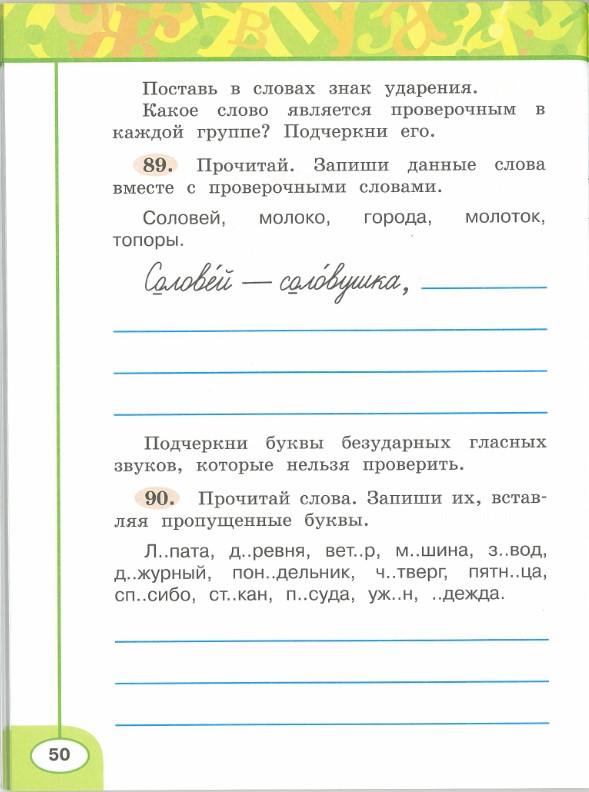 Поставь в словах знак ударения.
Какое слово является проверочным в
каждой группе? Подчеркни его.
89. Прочитай. Запиши данные слова
вместе с проверочными словами.
Соловей, молоко, города, молоток,
топоры.
Солове́й — соло́вушка,
Подчеркни буквы безударных гласных
звуков, которые нельзя проверить.
90. Прочитай слова. Запиши их, встав-
ляя пропущенные буквы.
Л..пата, д..ревня, вет..р, м..шина, з..вод,
д..журный, пон..дельник, ч..тверг, пятн..ца,
сп..сибо, ст..кан, п..суда, уж..н, ..дежда.
50